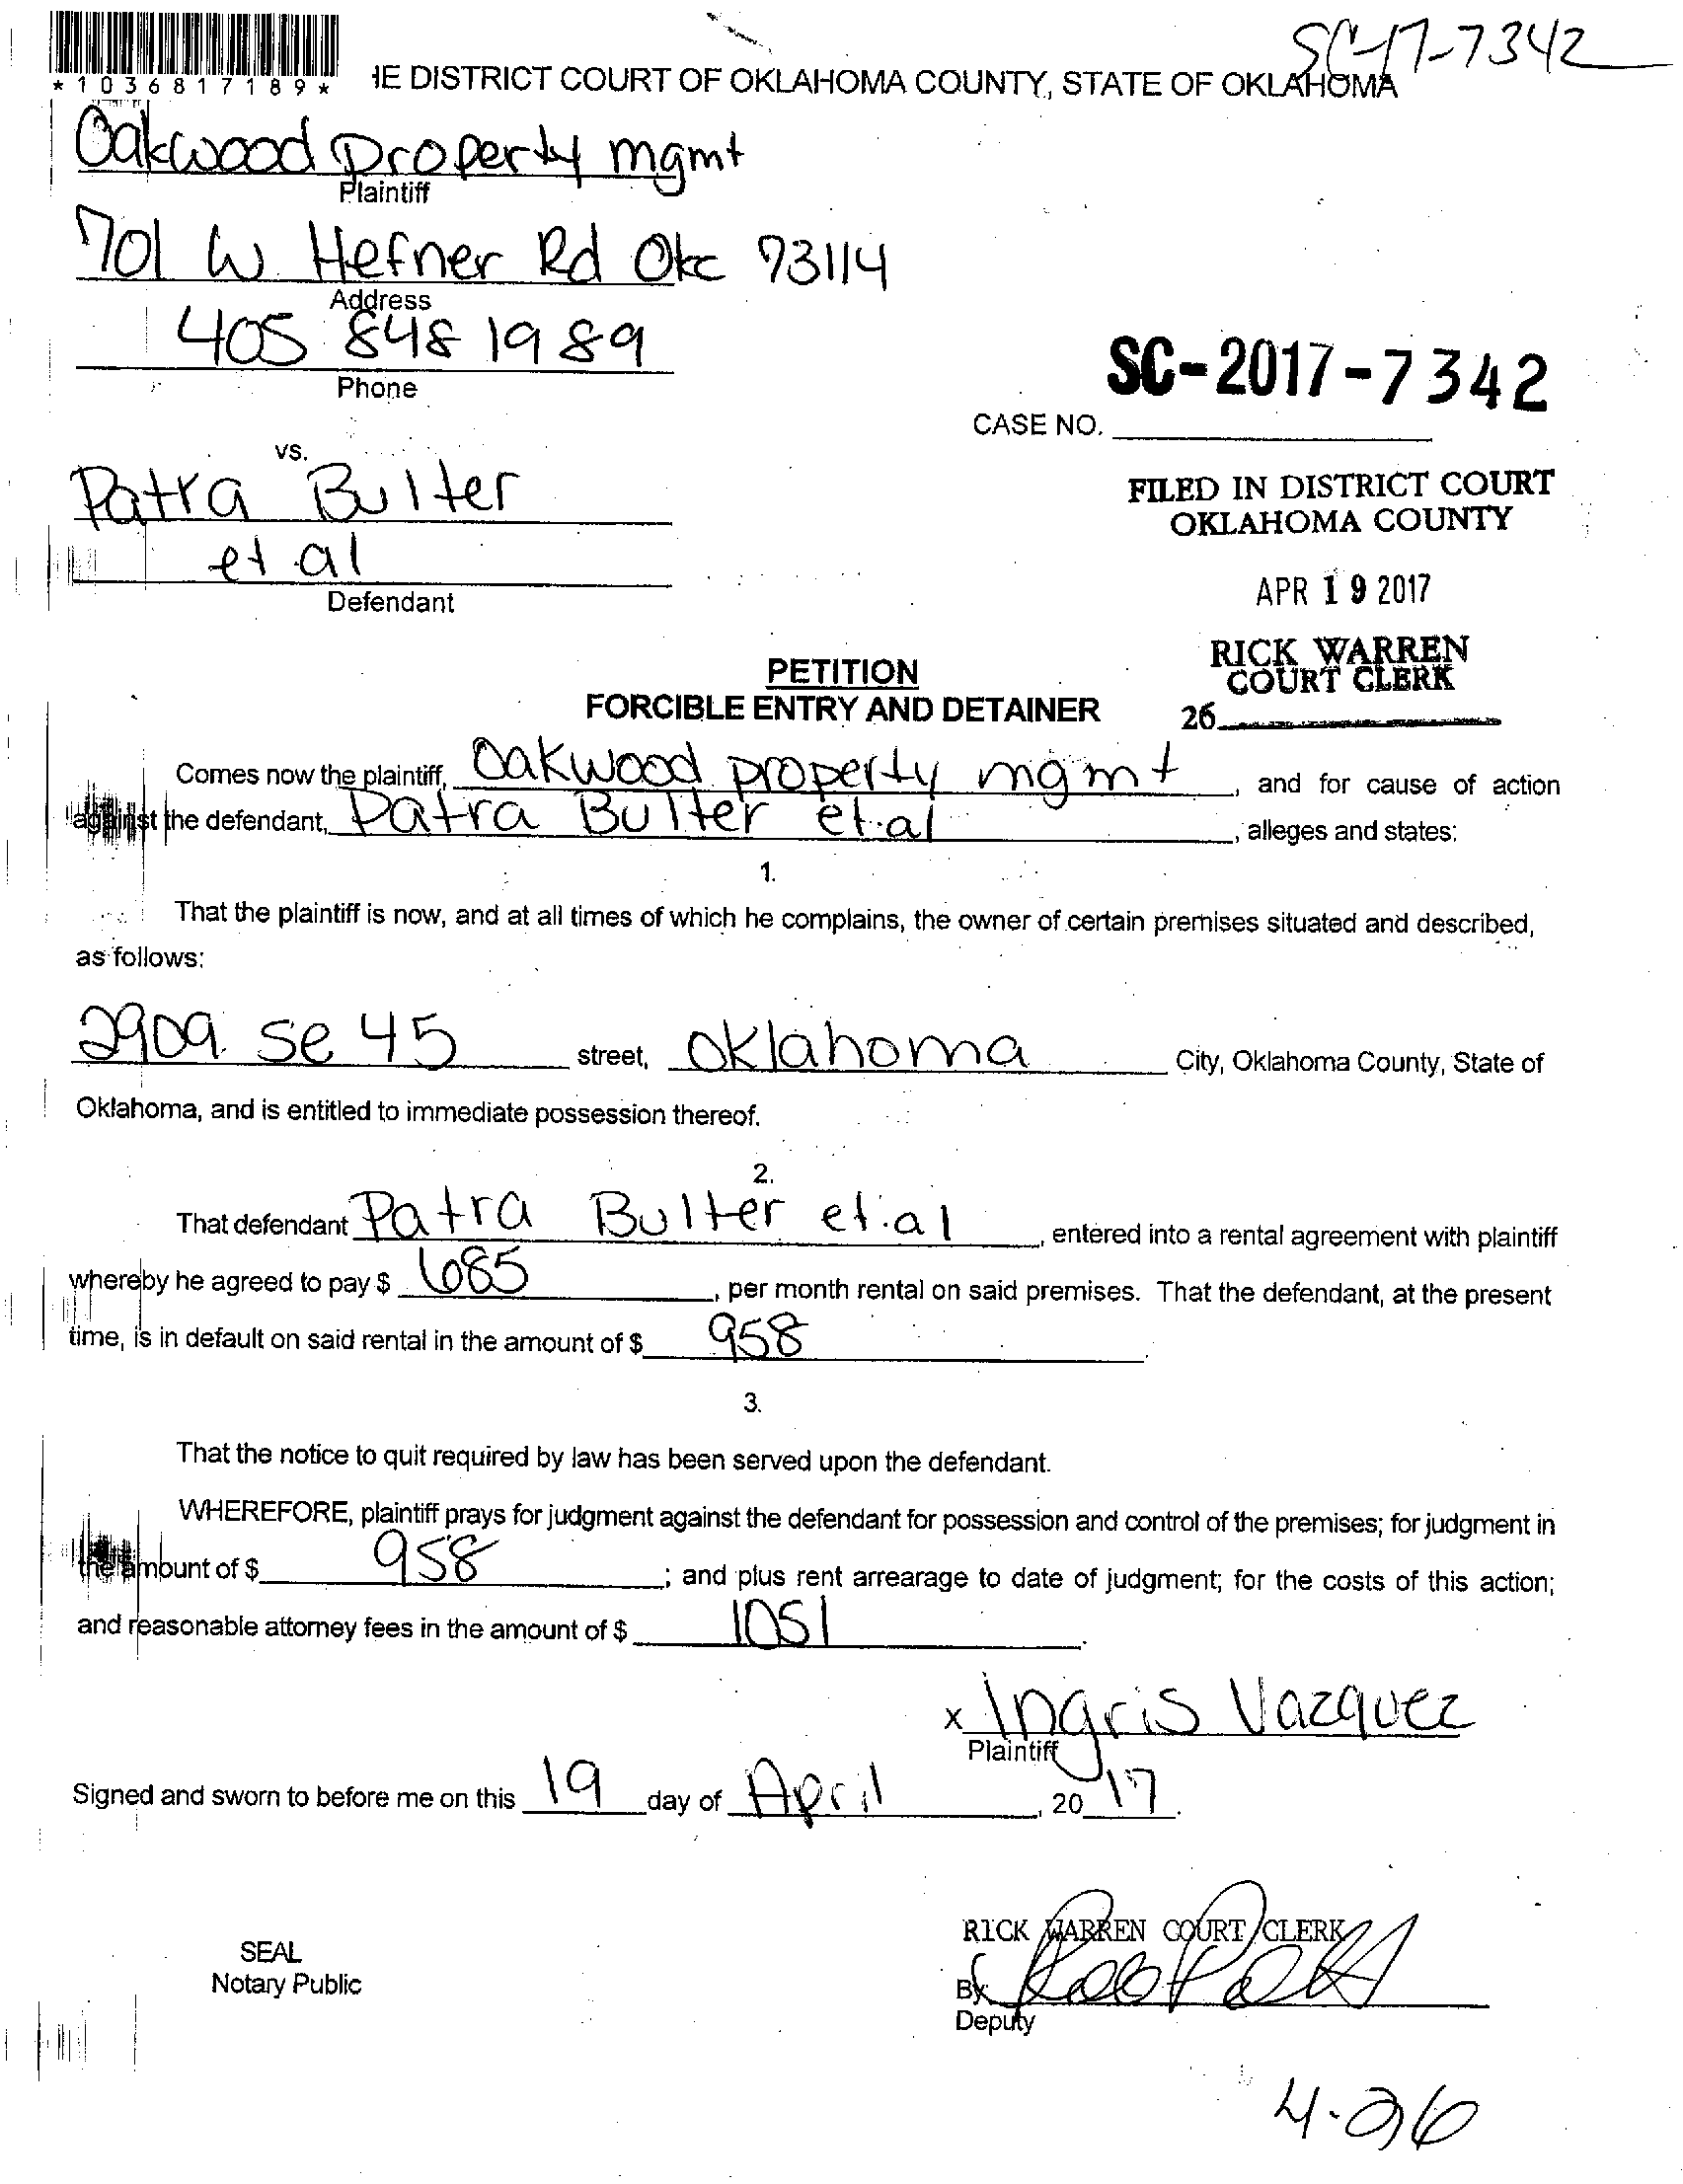 SC-17-7342
*1036817189*
HE DISTRICT COURT OF OKLAHOMA COUNTY, STATE OF OKLAHOMA
Oakwood property mgmt
Plaintiff
701 W Hefner Rd Okc 73114
Address
405 848 1989
Phone
SC-2017-7342
CASE NO.
vs.
Patra Bulter
et al
Defendant
FILED IN DISTRICT COURT
OKLAHOMA COUNTY
APR 19 2017
RICK WARREN
COURT CLERK
26
PETITION
FORCIBLE ENTRY AND DETAINER
Comes now the plaintiff, Oakwood property mgmt, and for cause of action
against the defendant, Patra Bulter et al, alleges and states:
1.
That the plaintiff is now, and at all times of which he complains, the owner of certain premises situated and described,
as follows:
2909 se 45 street, Oklahoma City, Oklahoma County, State of
Oklahoma, and is entitled to immediate possession thereof.
2.
That defendant Patra Bulter et al, entered into a rental agreement with plaintiff
whereby he agreed to pay $ 685, per month rental on said premises. That the defendant, at the present
time, is in default on said rental in the amount of $ 958.
3.
That the notice to quit required by law has been served upon the defendant.
WHEREFORE, plaintiff prays for judgment against the defendant for possession and control of the premises; for judgment in
the amount of $ 958; and plus rent arrearage to date of judgment; for the costs of this action;
and reasonable attorney fees in the amount of $ 1051.
x Ingris Vazquez
Plaintiff
Signed and sworn to before me on this 19 day of April, 20 17.
RICK WARREN COURT CLERK
SEAL
Notary Public
By
Deputy
4-26